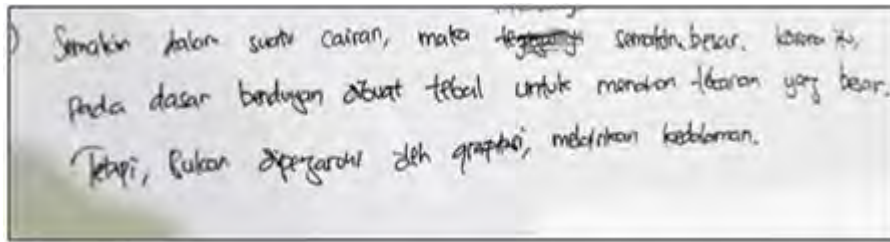 Semakin dalam suatu cairan, maka semakin besar. karena itu,
Pada dasar bendungan dibuat tebal untuk menahan tekanan yang besar.
Tetapi, Bukan dipengaruhi oleh graphasi, melainkan kedalaman.